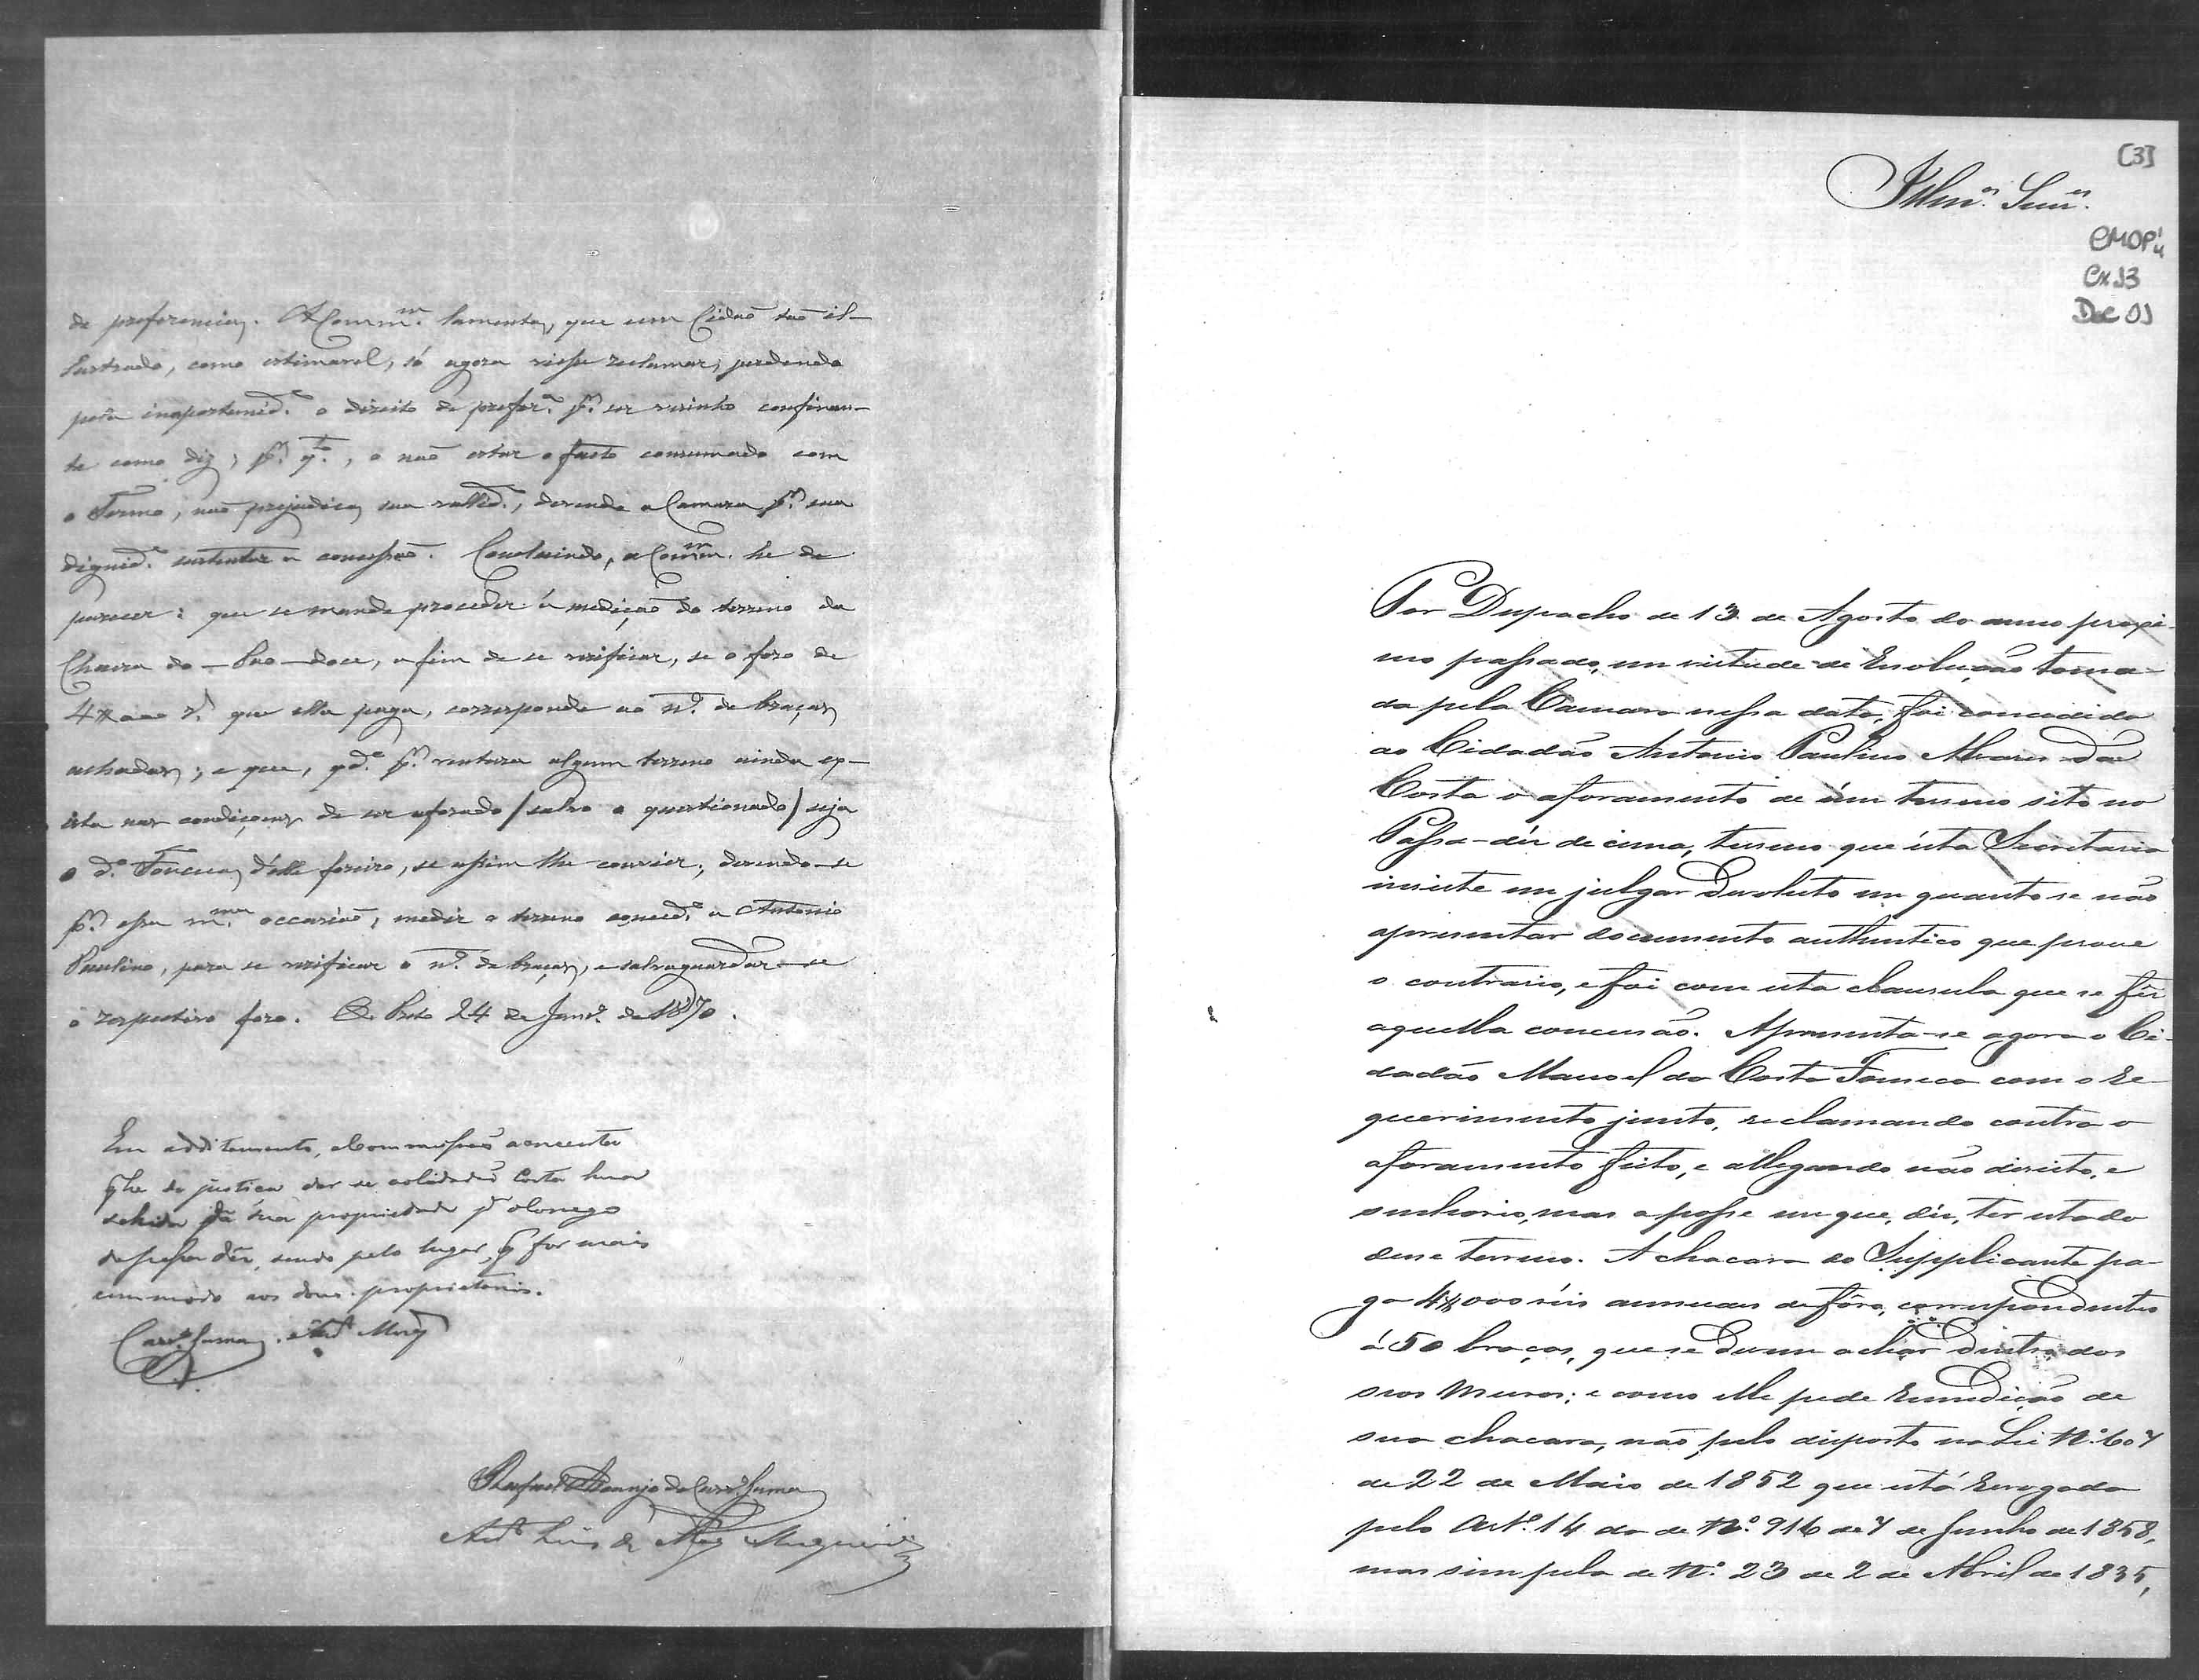 de preferencia. A Comm.m lamenta, que um Cidão tão il-
lustrado, como estimavel, só agora viesse reclamar, perdendo
pela inoportunid.e o direito de prefer.a p.r ser visinho confinan-
te como diz; p.r q.to, o não estar o facto consumado com
o Termo, não prejudica sua vallid.e, devendo a Camara p.r sua
dignid.e sustentar a concessão. Concluindo, a Comm.m he de
parecer: que se mande proceder á medição do terreno da
Chacra do – Pao – doce, afim de se verificar, se o foro de
4$000 r.s que ella paga, corresponde ao n.o de braças
achadas; e que, qd.o p.r ventura algum terreno ainda ex-
ista nas condiçoens de ser aforado / salvo o questionado / seja
o d.o Fonseca d'elle foreiro, se assim lhe convier; devendo-se
p.r essa m.ma occasião, medir o terreno conced.o a Antonio
Paulino, para se verificar o n.o de braças, e salvaguardar-se
o respectivo foro. O. Preto 24 de Janr.o de 1870.
Em additamento, a Commissão accrescenta
q he de justiça dar-se ao Cidadão Costa huma
sahida da sua propriedade p.a o Corrego
de passa dés, sendo pelo lugar, q for mais
commodo aos dous proprietarios.
Rafael Araujo de
Ant.o Luis de
[3]
Illm.os Snr.es
CMOP
Cx 13
Doc 01
Por Despacho de 13 de Agosto do anno proxi-
mo passado, em virtude de Resolução toma-
da pela Camara nessa data, foi concedido
ao Cidadão Antonio Paulino Alvares da
Costa o aforamento de úm terreno sito no
Passa-déz de cima, terreno que ésta Secretaria
insiste em julgar Devoluto em quanto se não
apresentar documento authentico que prove
o contrario, e foi com esta clausula que se fêz
aquella concessão. Apresenta-se agora o Ci-
dadão Manoel da Costa Fonseca com o re-
querimento junto, reclamando contra o
aforamento feito, e allegando não direito, e
senhorio, mas a posse em que, diz, ter estado
desse terreno. A chacara do Supplicante pa-
ga 4$000 réis annuaes de fôro, correspondentes
á 50 braças, que se Devem achar Dentro dos
seos muros; e como elle pede Remedição de
sua chacara, não pelo disposto na Lei N.o 607
de 22 de Maio de 1852 que está Revogada
pelo Art.o 14 da de N.o 916 de 7 de Junho de 1858,
mas sim pela de N.o 23 de 2 de Abril de 1835,